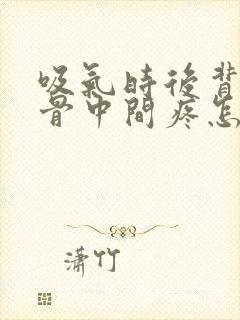 吸氣時後背
骨中間疼怎
潇竹